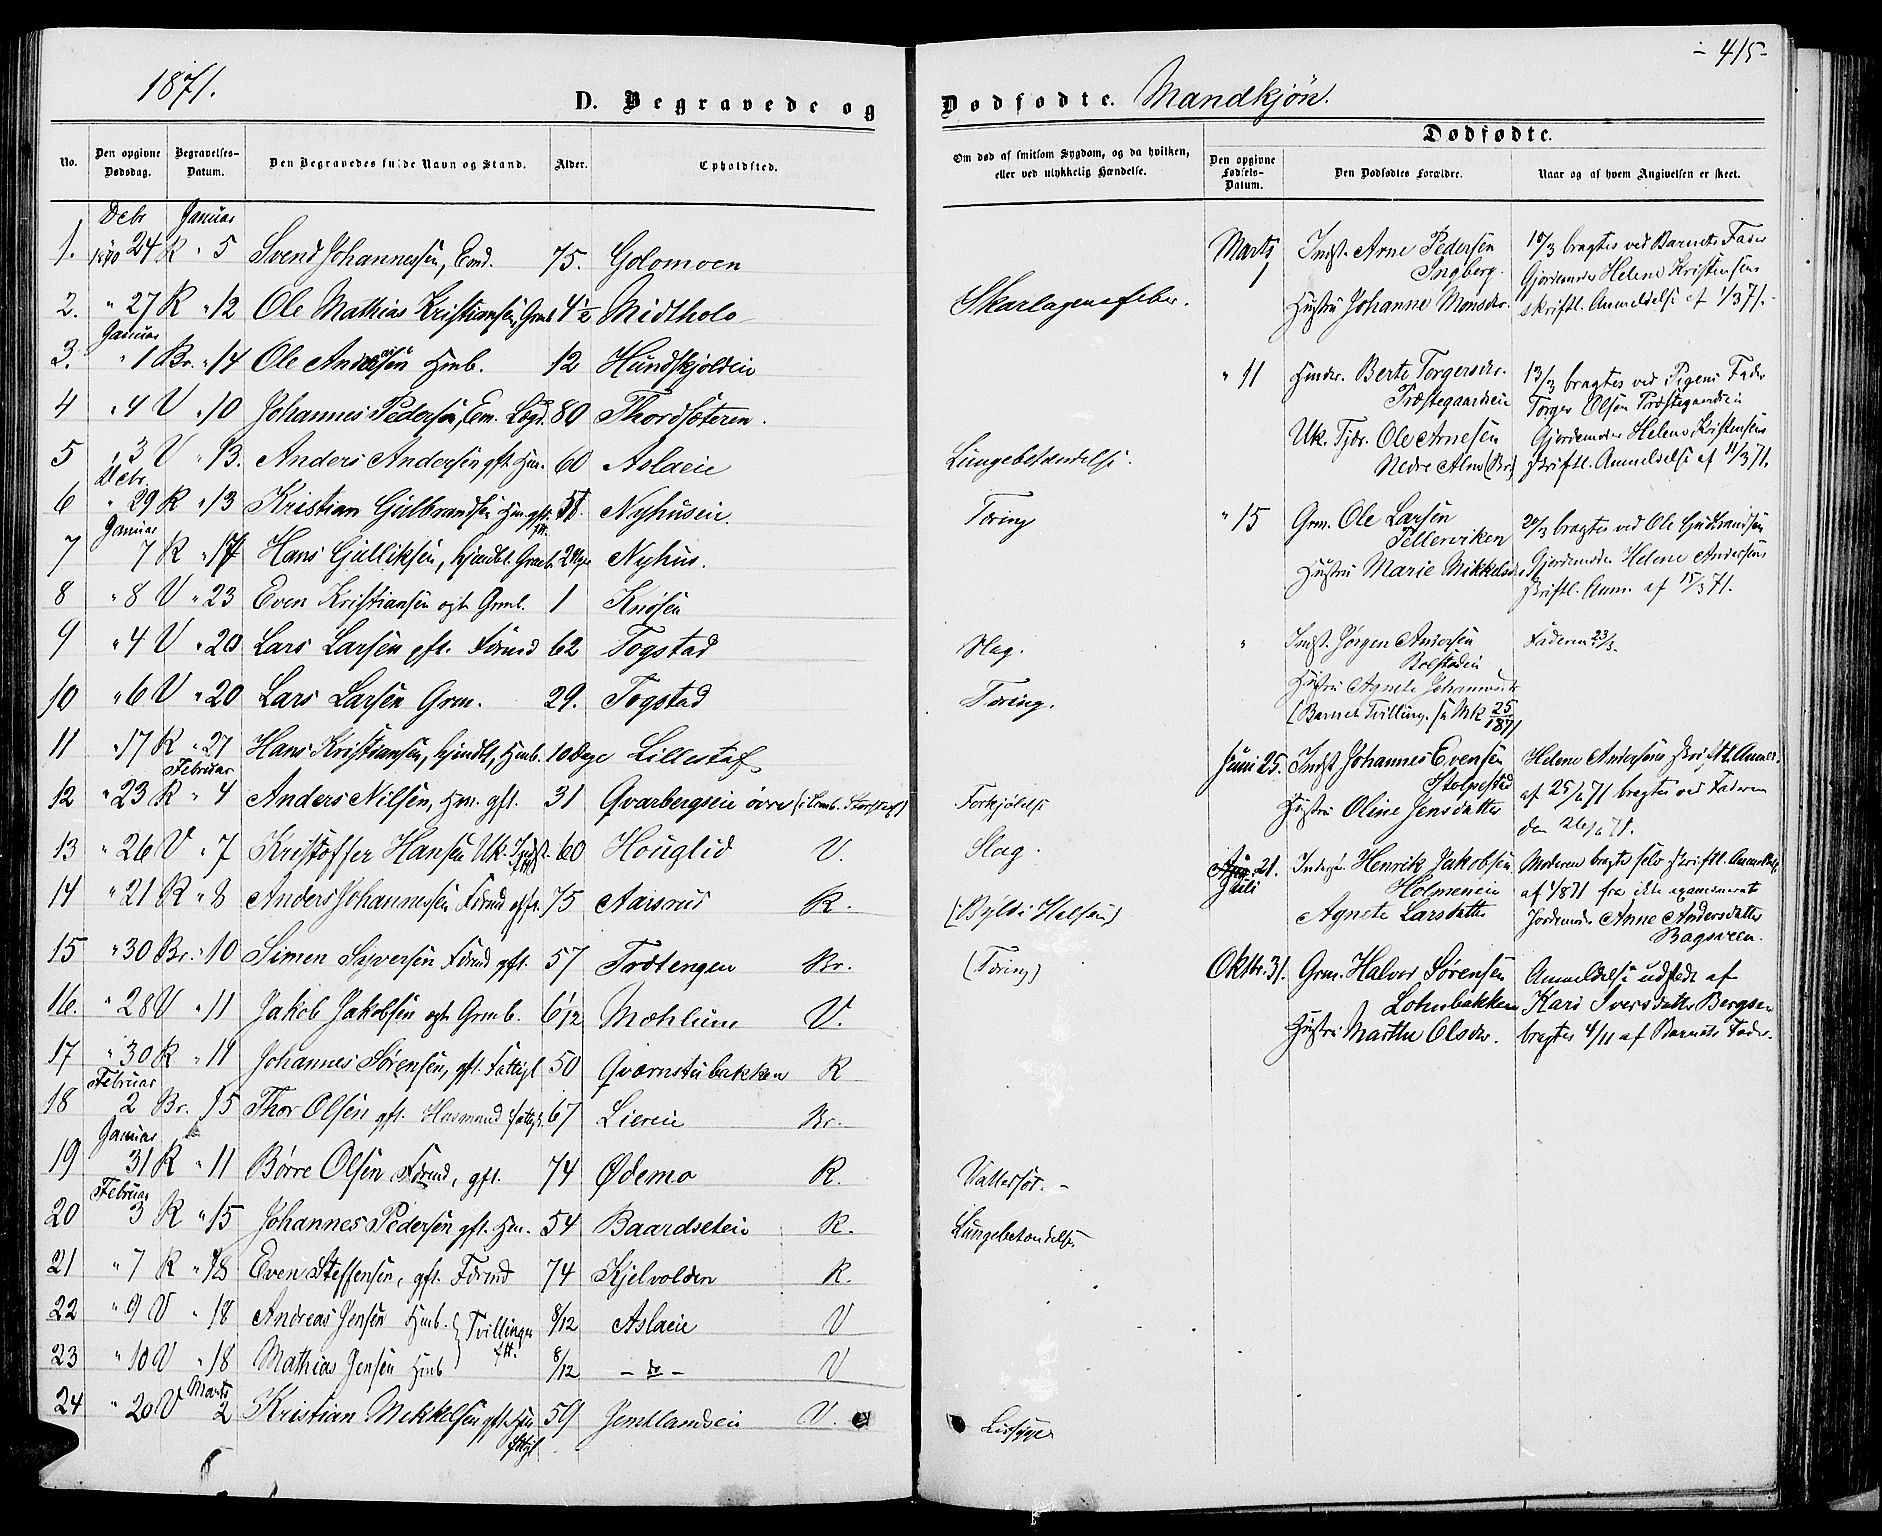 1871.
D. Begravede og
No. Den opgivne Dødsdag. Begravelses-Datum. Den Begravedes fulde Navn og Stand. Alder. Opholdsted.
Decbr Januar
1. 1870 24 R " 5 Svend Johannessen, Em. 75. Golomoen
2. " 27 R " 12 Ole Mathias Kristiansen, Grmb. 4½ Midtholo
Januar
3. " 1 Br. " 14 Ole Andersen Hmb. 12 Hundskjoldeie
4 " 4 V " 10 Johannes Pedersen, Em. Lægd. 80 Thordsæteren.
5 " 3 V " 13. Anders Andersen gft. Hm. 60 Aslaeie
Decbr.
6 " 29 R " 13 Kristian Gulbrandsen Hm. gft. 58. Nyhuseie.
Januar
7 7 R " 17 Hans Gulliksen, hjemdøbt, Grmb. Nyhus.
8 " 8 V " 23 Even Kristiansen ægte Grmb. 1 Knosen
9 " 4 V " 20 Lars Larsen gft. Førmd 62 Togstad
10 " 6 V " 20 Lars Larsen Grm. 29. Togstad
11 " 17 R " 27 Hans Kristiansen, hjemdøbt, Hmb. 10 Dage Lillestaf
Februar
12 " 23 R " 4 Anders Nilsen, Hm. gft. 31 Qvarbergseie øvre
13 " 26 V " 7 Kristoffer Hansen Uk. Indst. 60 Houglid V.
14 " 21 R " 8 Anders Johannessen Førmd gft. 75 Aarsrud R.
15 " 30 Br. " 10 Simen Syversen Førmd gft. 57 Trætengen Br.
16. " 28 V " 11 Jakob Jakobsen ægte Grmb. 6/12 Mæhlum V.
17 " 30 R " 11 Johannes Sørensen, gft. Fattigl 50 Qværnstubakken R
Februar
18 2 Br. " 15 Thor Olsen gft. Husmand fattigl. 67 Liereie Br.
Januar
19 31 R " 11 Børre Olsen Førmd, gft. 74 Ødemo R.
Februar
20 3 R " 15 Johannes Pedersen gft. Hm. 54 Baardseteie R.
21 " 7 R " 18 Even Steffensen, gft. Førmd 74 Kjelvolden R.
22 " 9 V " 18 Andreas Jensen Hmb. Tvillinger 8/12 Aslaeie V
23 " 10 V " 18 Mathias Jensen Hmb 8/12 – do – V
Marts
24 " 20 V 2 Kristian Mikkelsen gft. Hm 59 Jemtlandseie V.
- 415-
Dødfødte. Mandkjøn.
Dødfødte.
Om død af smitsom Sygdom, og da hvilken, eller ved ulykkelig Hændelse. Den opgivne Fødsels-Datum. Den Dødfødtes Forældre. Naar og af hvem Angivelsen er skeet.
Skarlagensfeber.
Lungebetændelse.
Tæring
Slag.
Tæring.
Forkjølelse
Slag.
(Byld i Halsen)
(Tæring)
Vattersot. –
Lungebetændelse
Marts 1 Indst. Arne Pedersen
Ingberg.
Hustru Johanne Monsdtr.
10/3 bragtes ved Barnets Fader
Gjordemoder Helene Kristensens
skriftl. Anmeldelse af 1/3 71.
" 11 Hmdtr. Berte Torgersdtr.
Præstegaardseie
Uk. Tjdr. Ole Arnesen
Nedre Alm (Br.)
13/3 bragtes ved Pigens Fader
Torger Olsen Præstegaardseie
Gjordemoder Helene Kristensens
skriftl. Anmeldelse af 11/3 71.
" 15 Grm. Ole Larsen
Pellerviken
Hustru Marie Mikkelsdtr
20/3 bragtes ved Ole Gudbrandsen
Gjordemoder Helene Andersens
skriftl. Anm. af 15/3 71.
" Indst. Jørgen Andersen
Bolstadeie
Hustru Agnete Johannesdtr
(Barnet Tvilling, se Mk 25/1871
Faderen 23/3.
Juni 25. Indst Johannes Evensen
Stolpestad
Hustru Oline Jensdatter
Helene Andersens skriftl. Anmeld.
af 25/6 71 bragtes ved Faderen
den 26/6 71.
Juli 21. Henrik Jakobsen
Holmeneie
Agnete Larsdatter
Moderen bragte selv skriftl. Anmeldelse
af 4/8 71 fra ikke examineret
Jordemoder Anne Andersdatter
Bagsveen.
Oktbr. 31. Grm. Halvor Sørensen
Lohnbakken
Hustru Marthe Olsdtr.
Anmeldelse udstedt af
Kari Iversdatter Bergseie
bragtes 4/11 af Barnets Fader.